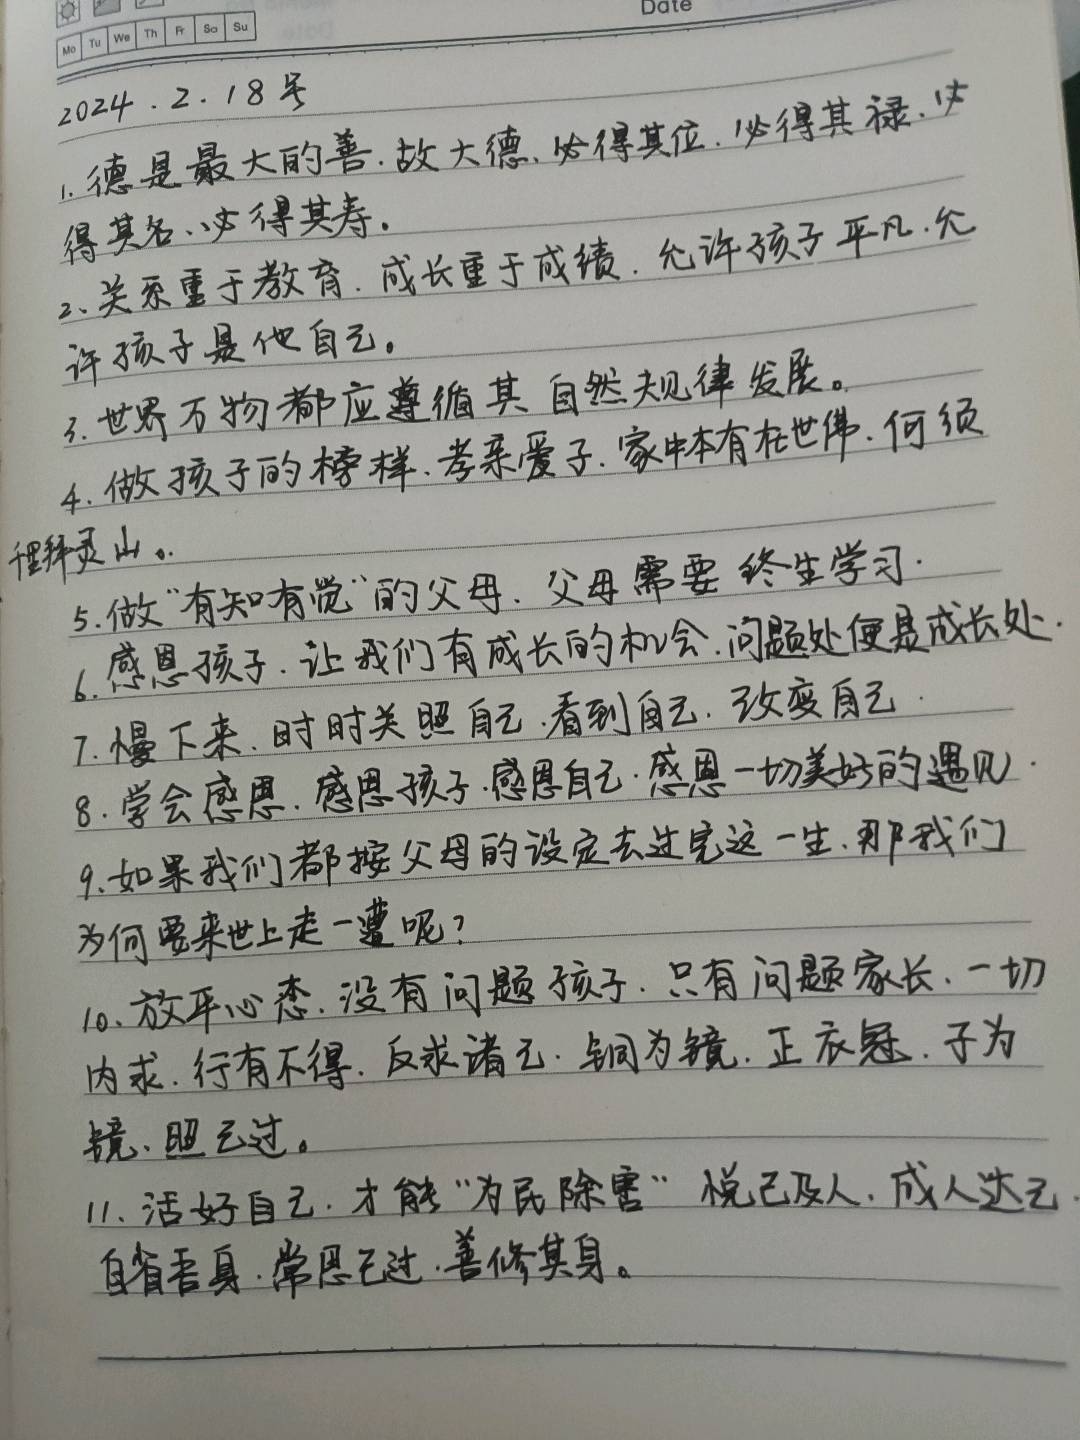 Date
Mo Tu We Th Fr Sa Su
2024.2.18号
1.德是最大的善.故大德、必得其位.必得其禄.必
得其名、必得其寿。
2、关系重于教育.成长重于成绩.允许孩子平凡.允
许孩子是他自己。
3.世界万物都应遵循其自然规律发展。
4.做孩子的榜样.孝亲爱子.家中本有在世佛.何须
千里拜灵山。
5.做“有知有觉”的父母.父母需要终生学习.
6.感恩孩子.让我们有成长的机会.问题处便是成长处.
7.慢下来、时时关照自己.看到自己.改变自己.
8.学会感恩.感恩孩子.感恩自己.感恩一切美好的遇见.
9.如果我们都按父母的设定去过完这一生、那我们
为何要来世上走一遭呢?
10.放平心态.没有问题孩子.只有问题家长.一切
内求.行有不得.反求诸己.铜为镜.正衣冠.子为
镜、照己过。
11.活好自己.才能“为民除害” 悦己及人.成人达己.
自省吾身.常思己过.善修其身。